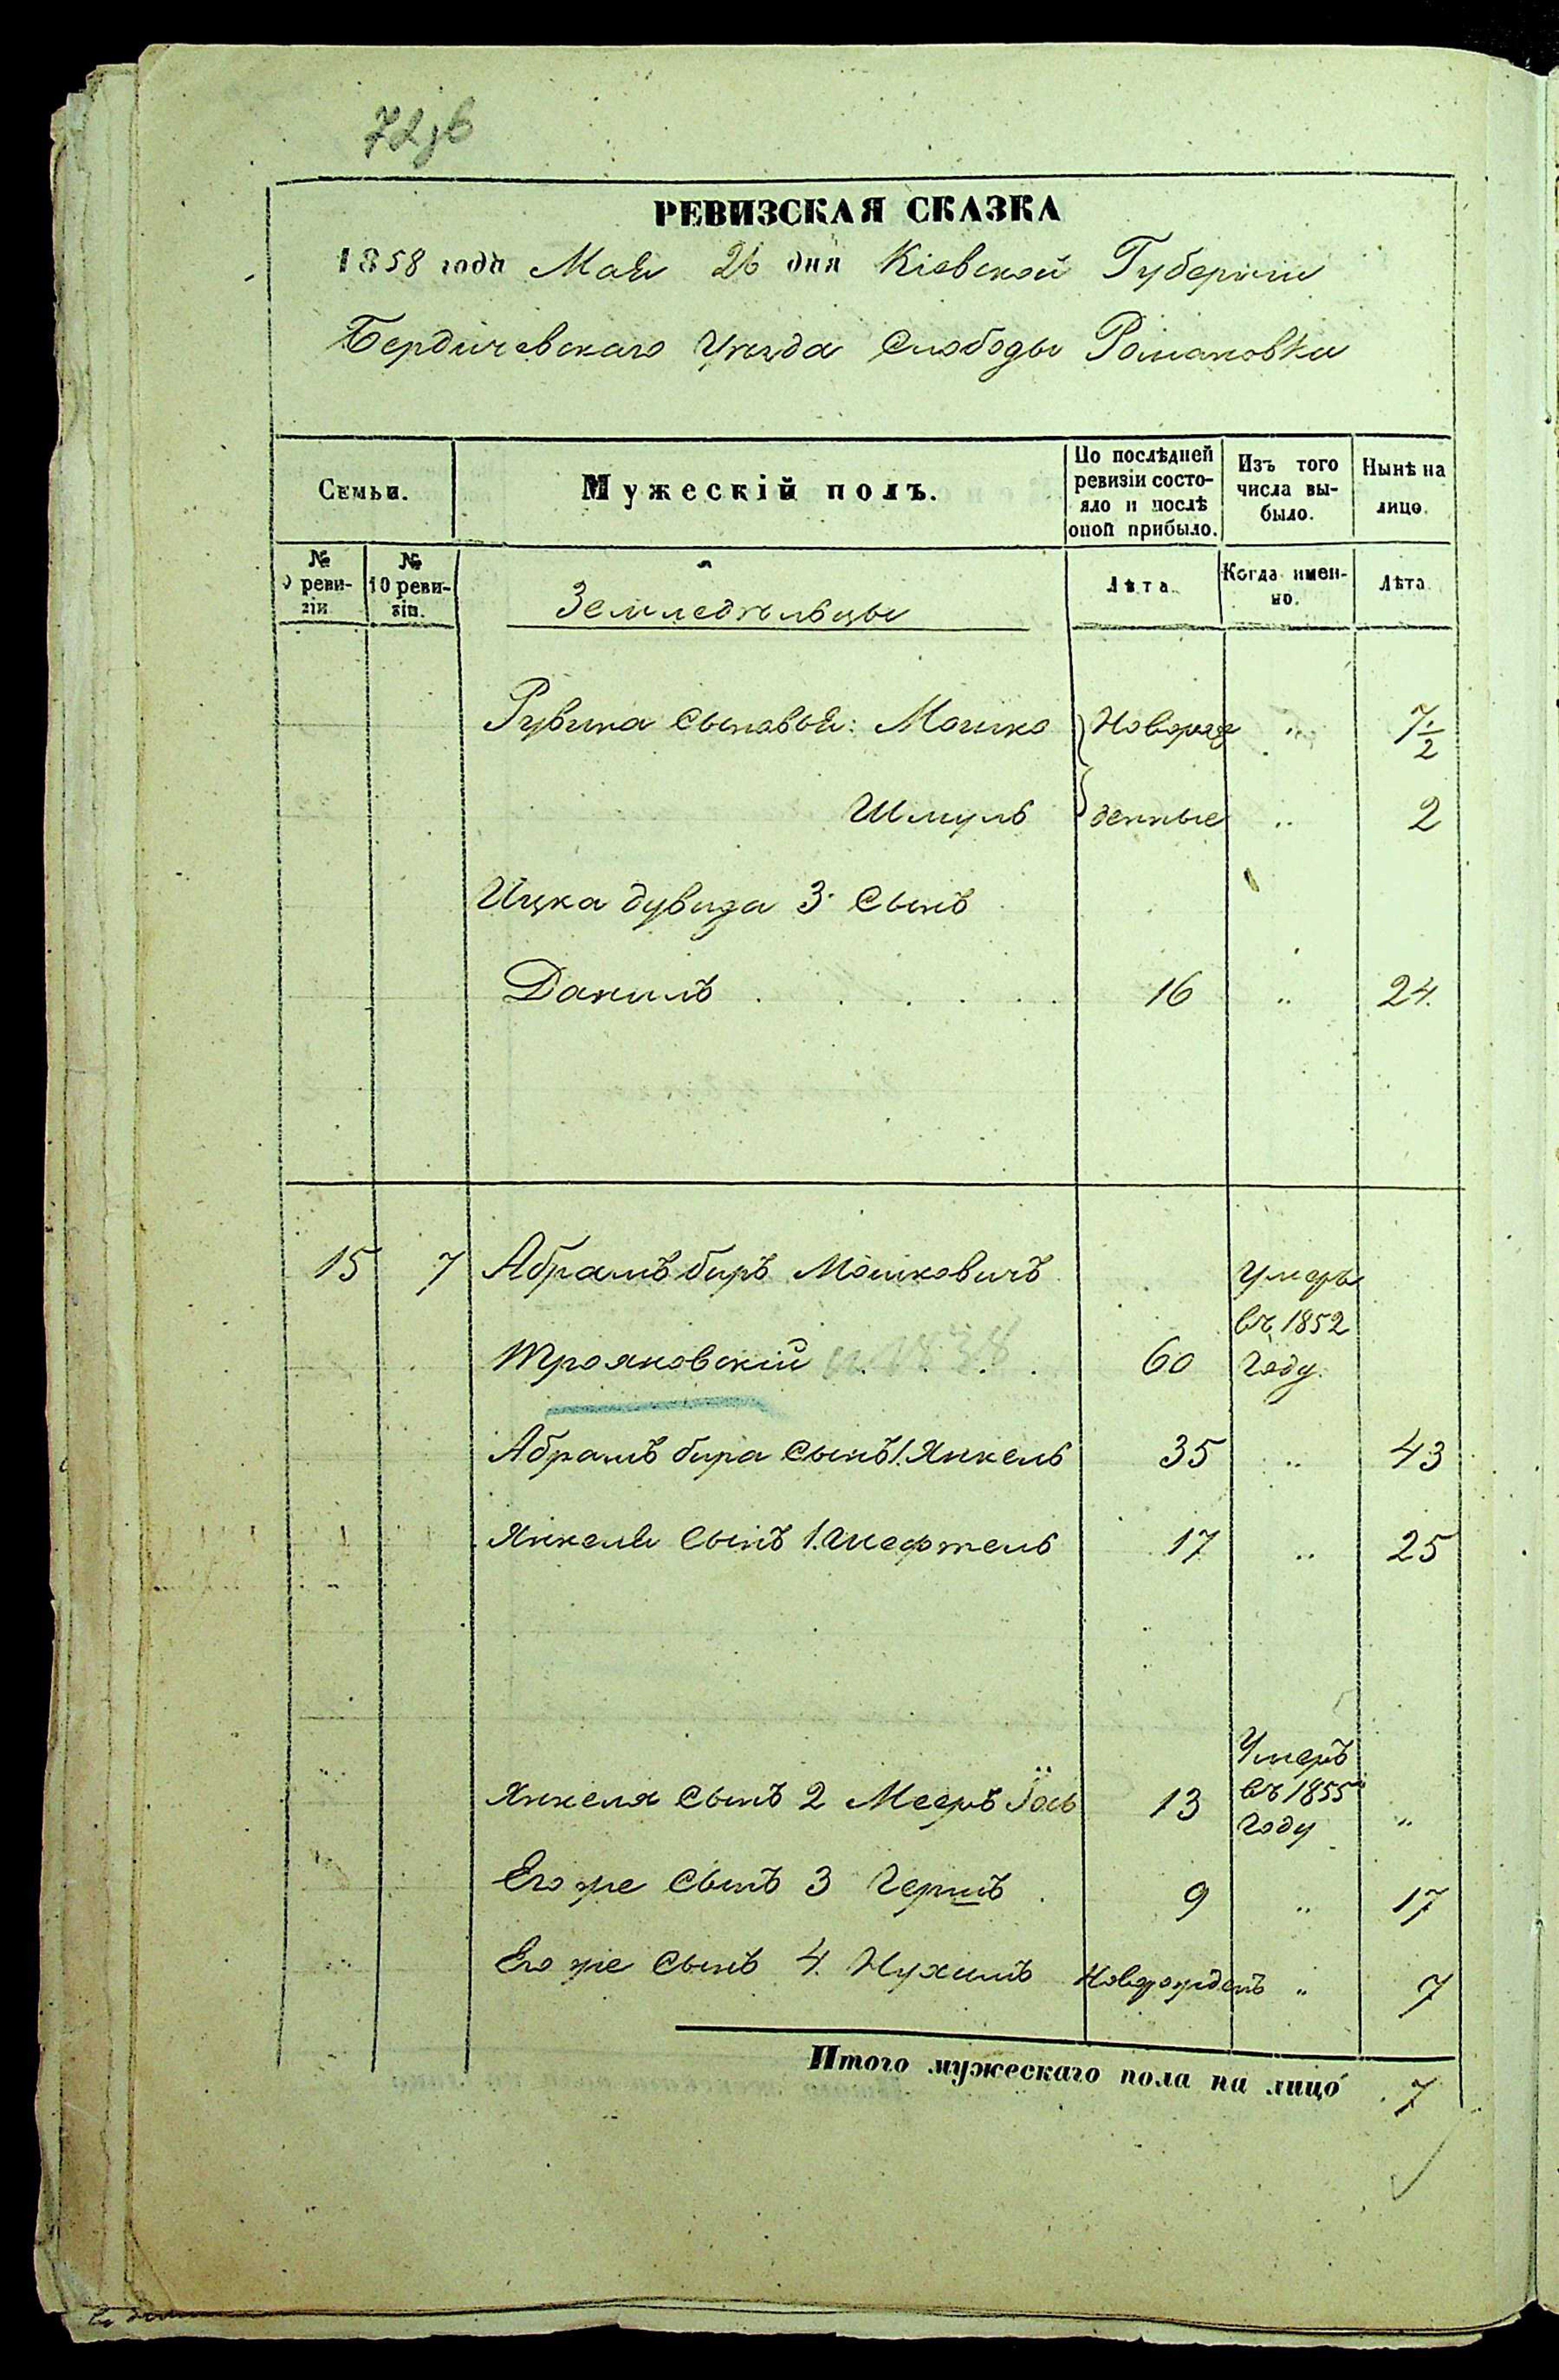 РЕВИЗСКАЯ СКАЗКА
1858 года Мая 26 дня Кіевской Губерніи
Бердичевскаго Уѣзда Слободы Романовки
Семьи.
Мужескій полъ.
По послѣдней ревизіи состояло и послѣ оной прибыло.
Изъ того числа выбыло.
Нынѣ на лицо.
№ 9 ревизіи
№ 10 ревизіи.
Земледѣльцы
Лѣта.
Когда именно.
Лѣта.
Рувина сыновья: Мошко Новорож „ 7 1/2
Шмуль денные „ 2
Ицка дувида 3 Сынъ
Данилъ 16 „ 24.
15 7 Абрамъ биръ Мошковичъ Умеръ
въ 1852
Трояновскій 60 году.
Абрамъ бира сынъ 1. Янкель 35 „ 43
Янкеля Сынъ 1. Шефтель 17 „ 25
Умеръ
Янкеля сынъ 2 Мееръ Іось 13 въ 1855 „
году
Его же сынъ 3 Гершъ 9 „ 17
Его же сынъ 4. Нухимъ Новорожденъ „ 7
Итого мужескаго пола на лицо 7